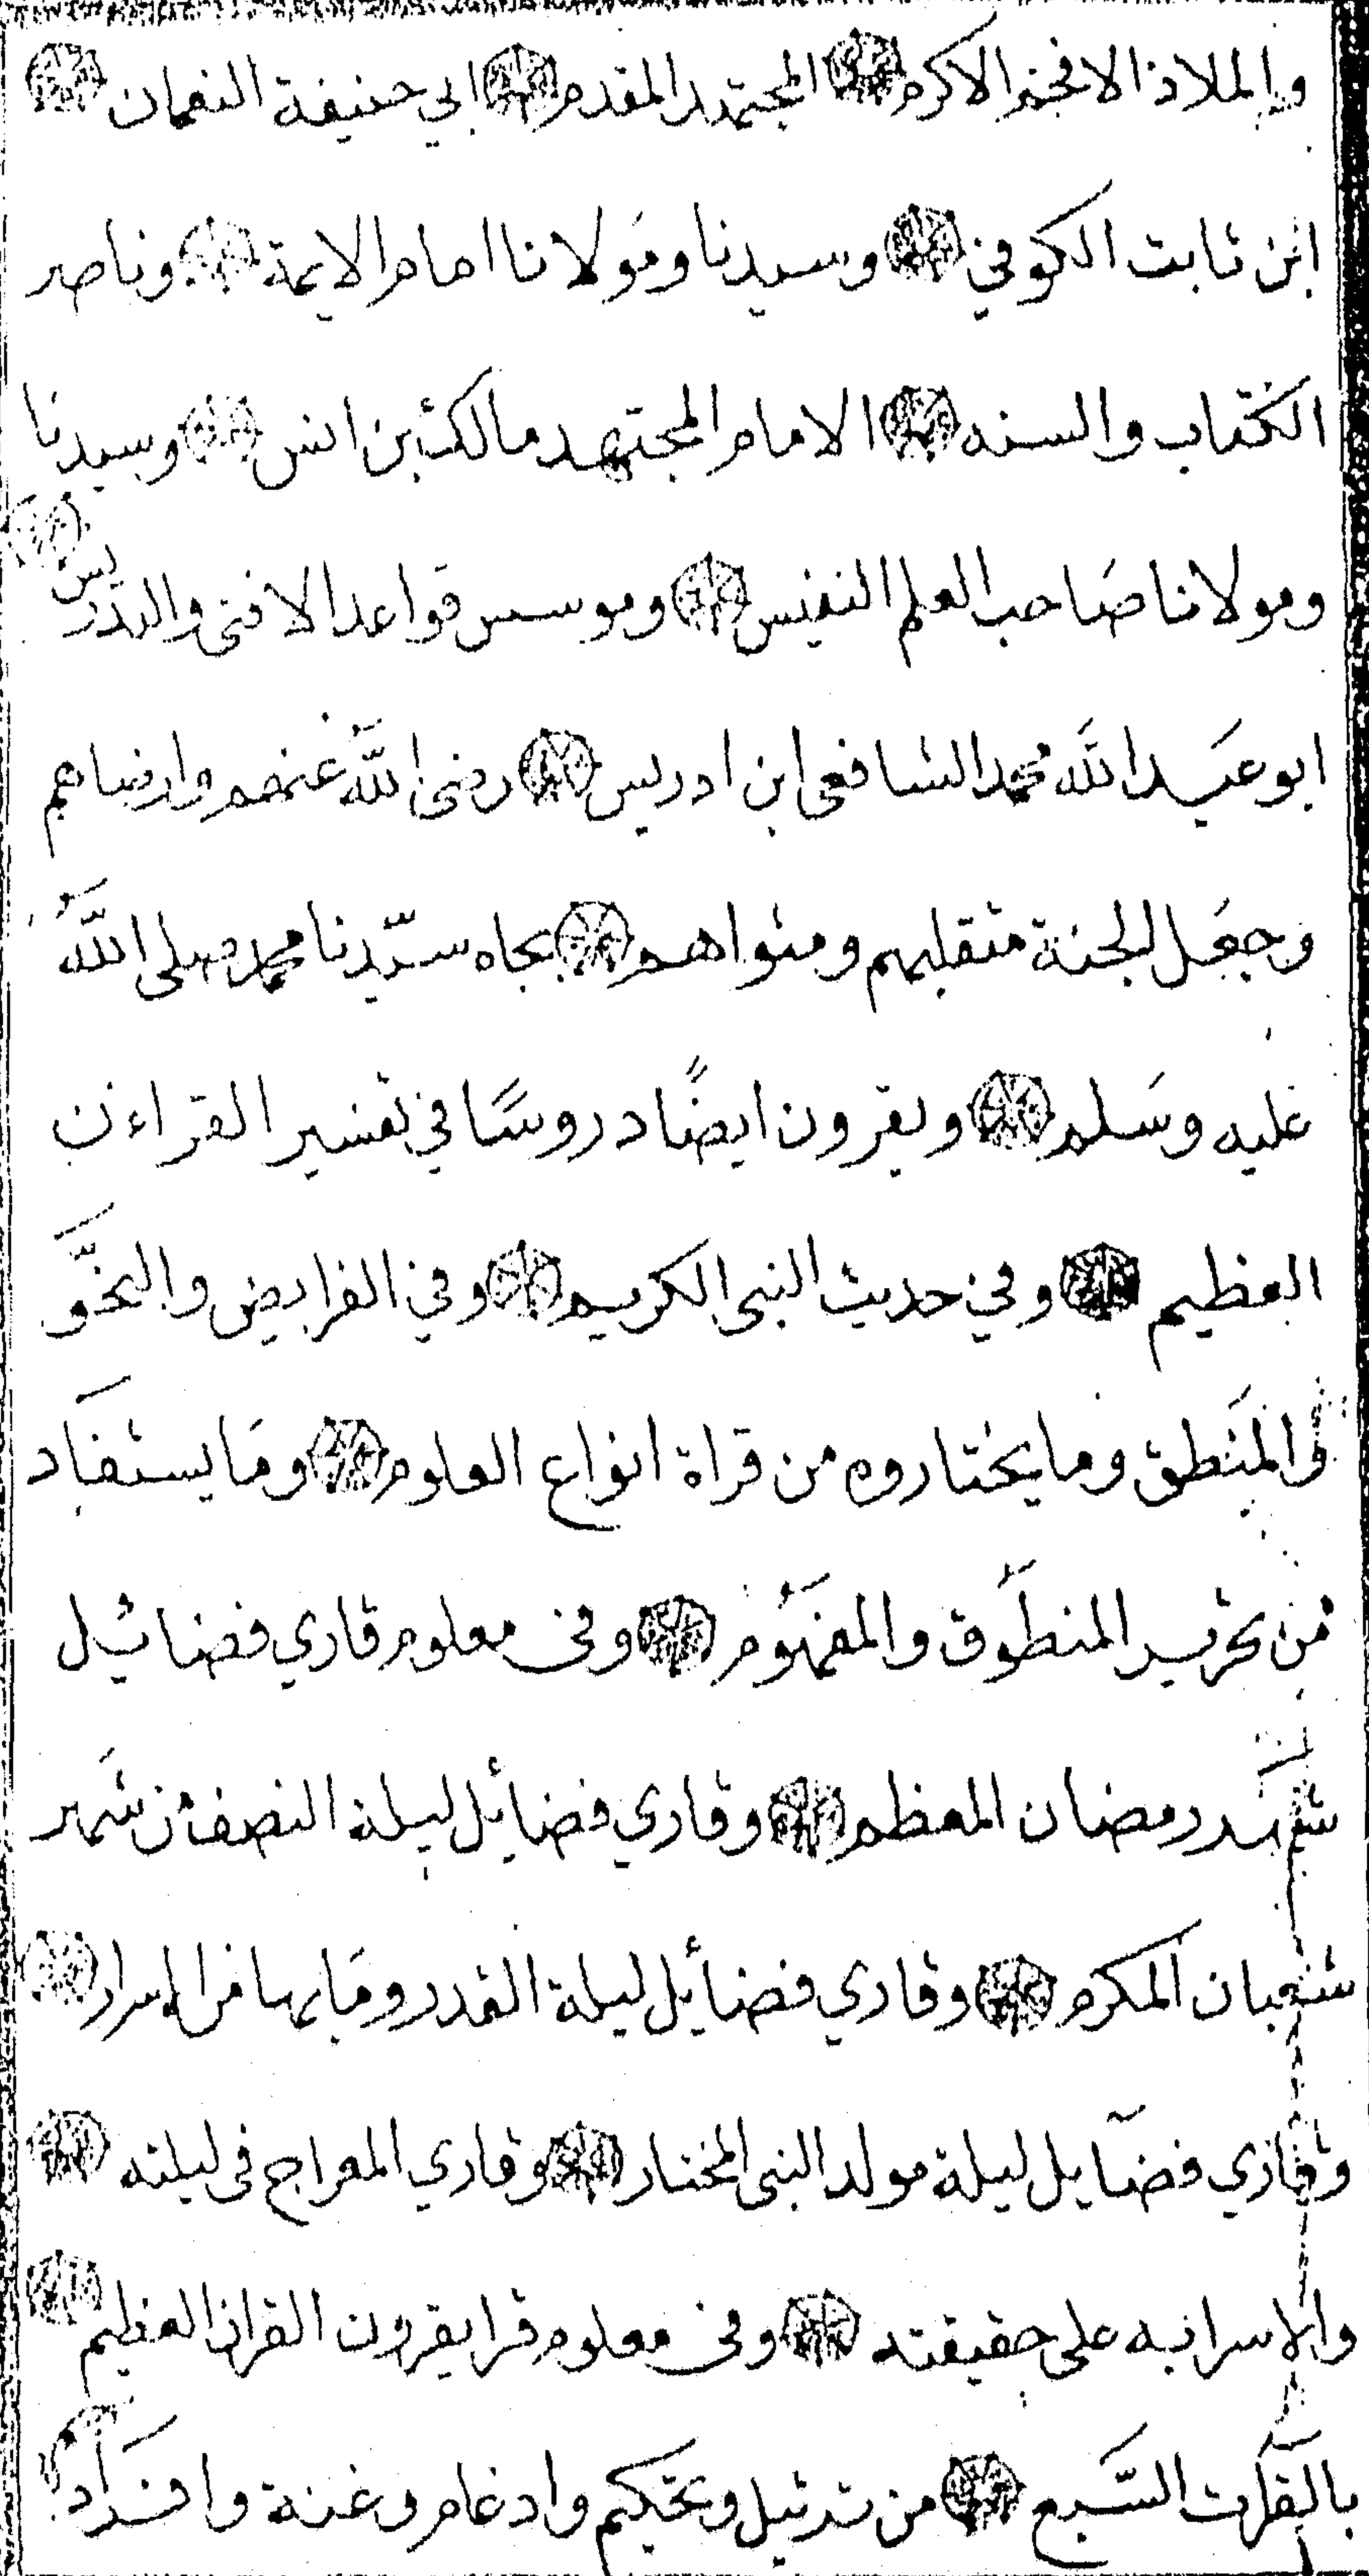 والملاذ الافخم الاكرم المجتهد المقدم ابي حنيفة النعمان
ابن ثابت الكوفي وسيدنا ومولانا امام الايمة وناصر
الكتاب والسنه الامام المجتهد مالك بن انس وسيدنا
ومولانا صاحب العلم النفيس وموسس قواعد الافتى والتدريس
ابو عبد الله محمد الشافعى ابن ادريس رضى الله عنهم وارضاهم
وجعل الجنة متقلبهم ومثواهم بجاه سيّدنا محمد صلى الله
عليه وسلم ويقرون ايضًا دروسًا في تفسير القراءن
العظيم وفي حديث النبى الكريم وفي الفرايض والنحو
والمنطق وما يختاروه من قراة انواع العلوم وما يستفاد
من تحرير المنطوق والمفهوم وفى معلوم قاري فضائيل
شهر رمضان المعظم وقاري فضائل ليلة النصف من شهر
شعبان المكرم وقاري فضائل ليلة القدر وما بها من الاسرار
وقاري فضايل ليلة مولد النبى المختار وقاري المعراج فى ليلته
والاسرا به على حقيقته وفى معلوم قرا يقرون القران العظيم
بالقرآت السّبع من ترتيل وتحكيم وادغام وغنة وافراد